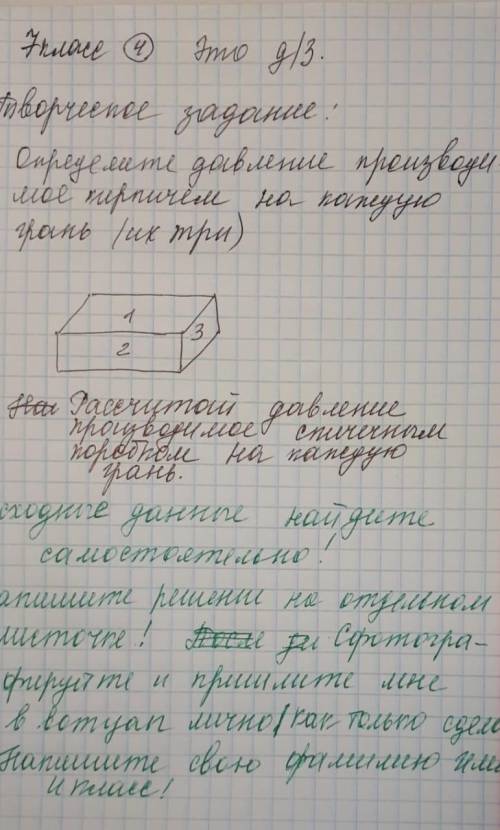 7 класс (4) Это д/з.
Творческое задание:
Определите давление производи
мое кирпичём на каждую
грань (их три)
1
2
3
Рассчитай давление
производимое спичечным
коробком на каждую
грань.
сходные данные найдите
самостоятельно!
апишите решение на отдельном
листочке! После Сфотогра-
фируйте и пришлите мне
в вотцап лично/как только сдела
Напишите свою фамилию имя
и класс!